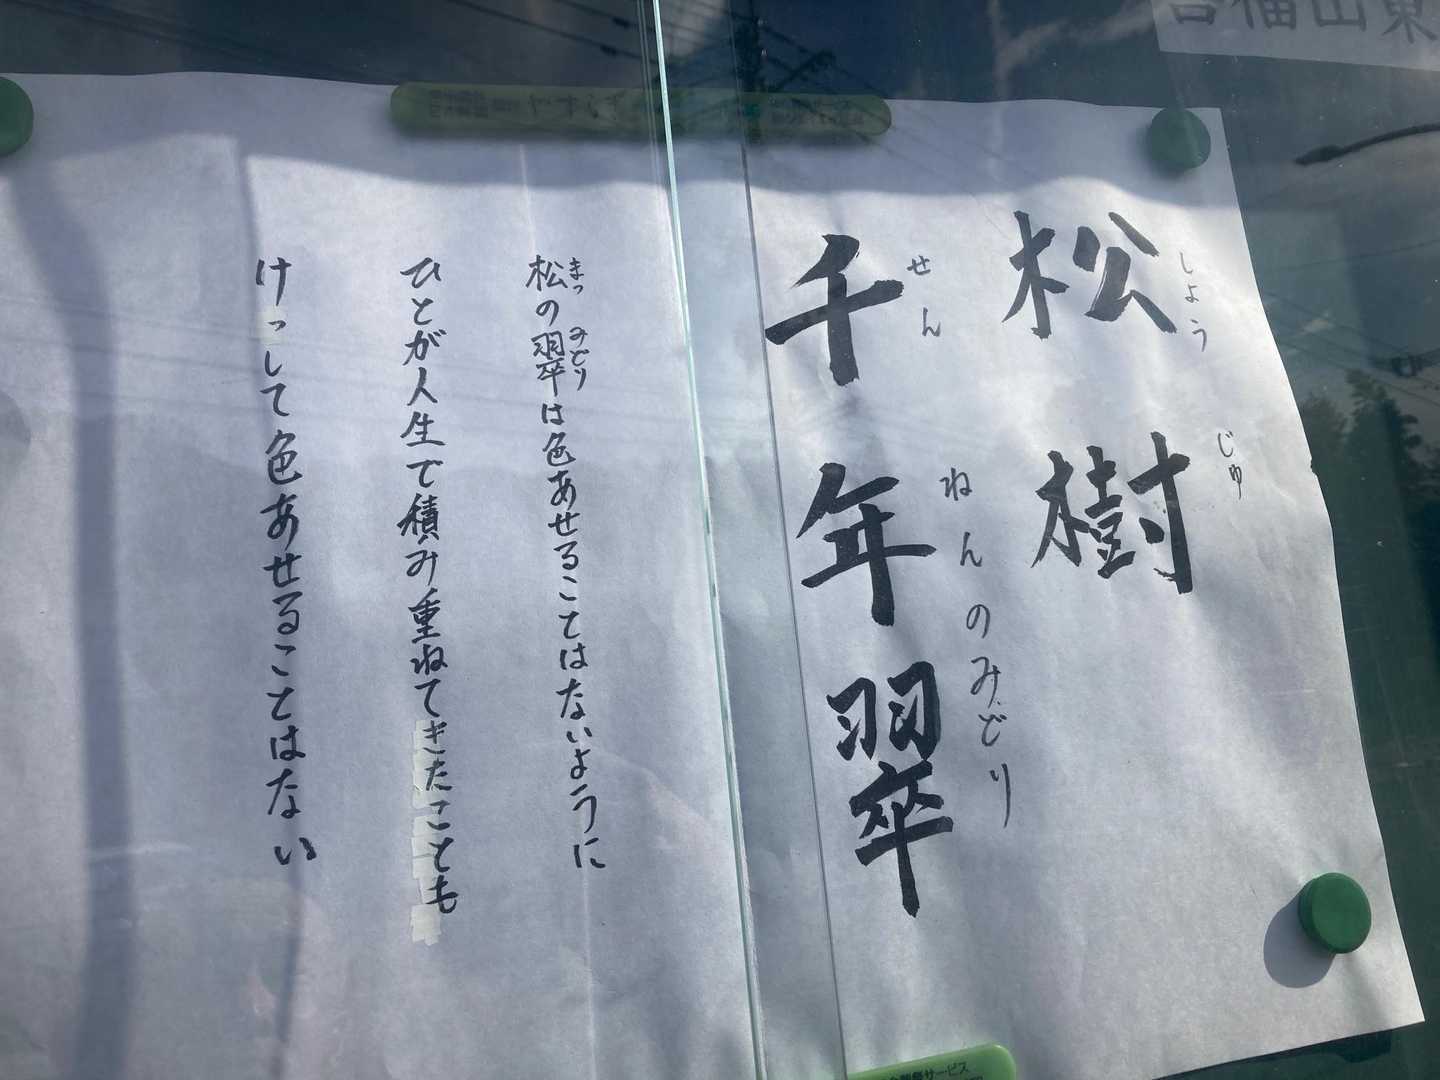 東山福吉
松樹
しょうじゅ
千年翠
せんねんのみどり
松の翠は色あせることはないように
まつ みどり
ひとが人生で積み重ねてきたことも
けっして色あせることはない